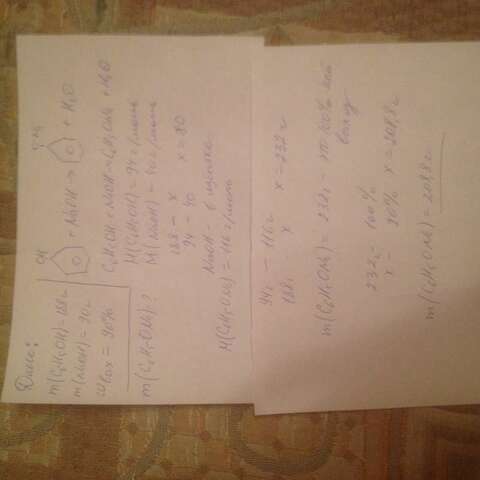 Дано:
m(C₆H₅OH)=188г
m(NaOH)=90г
ωвых = 90%
m(C₆H₅ONa)?
OH
+ NaOH → + H₂O
ONa
C₆H₅OH + NaOH → C₆H₅ONa + H₂O
M(C₆H₅OH) = 94 г/моль
M(NaOH) = 40 г/моль
188 — x
94 — 40 x = 80
NaOH — в избытке
M(C₆H₅ONa) = 116 г/моль
94г — 116г
188г — x x = 232г
m(C₆H₅ONa) = 232г — при 100%-ном
выходе
232г — 100%
x — 90% x = 208,8г
m(C₆H₅ONa) = 208,8г